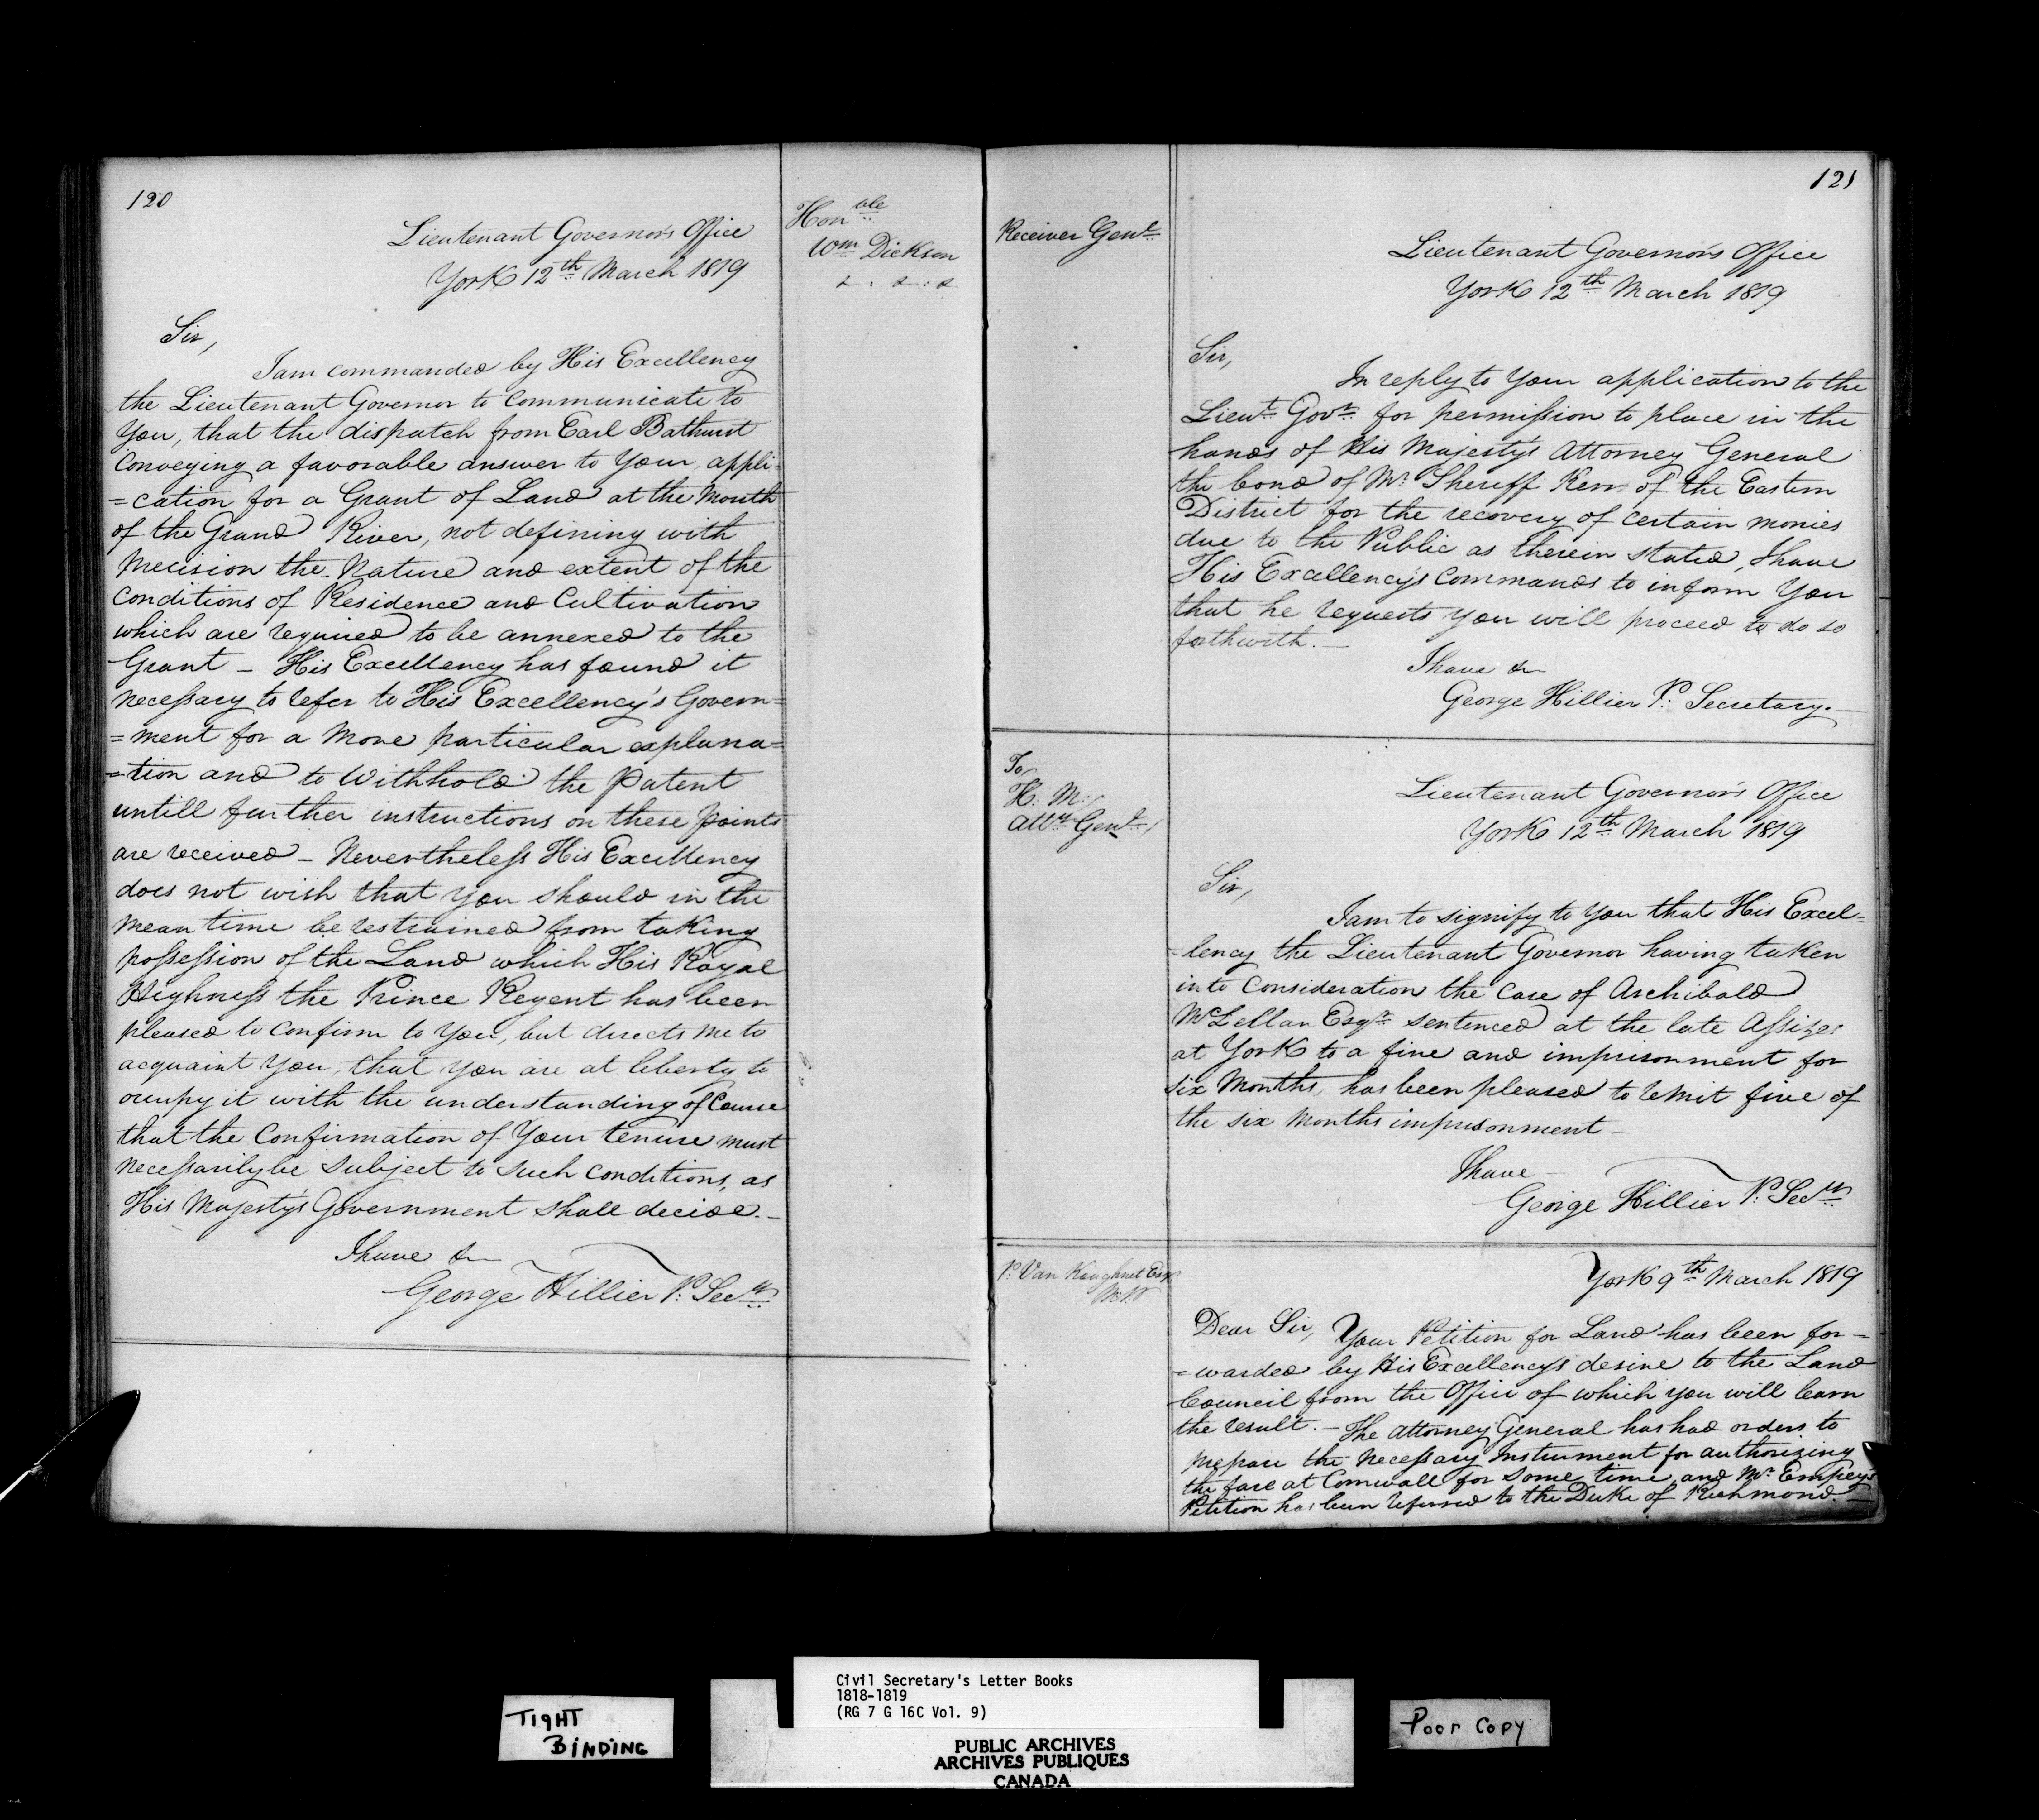 120
Lieutenant Governor's Office
York 12th March 1819
Honble
Wm Dickson
&. &. &
Sir,
I am commanded by His Excellency
the Lieutenant Governor to Communicate to
You, that the dispatch from Earl Bathurst
Conveying a favorable answer to Your appli=
=cation for a Grant of Land at the Mouth
of the Grand River, not defining with
Precision the Nature and extent of the
Conditions of Residence and Cultivation
which are required to be annexed to the
Grant - His Excellency has found it
necessary to refer to His Excellency's Govern=
=ment for a More particular explana=
=tion and to Withhold the Patent
untill further instructions on these points
are received - Nevertheless His Excellency
does not wish that you should in the
mean time be restrained from taking
possession of the Land which His Royal
Highness the Prince Regent has been
pleased to Confirm to You, but directs me to
acquaint You, that You are at liberty to
occupy it with the understanding of Course
that the Confirmation of Your tenure must
necessarily be Subject to Such Conditions, as
His Majesty's Government shall decide.-
I have &c
George Hillier P. Secry
121
Receiver Genl
Lieutenant Governor's Office
York 12th March 1819
Sir,
In reply to Your application to the
Lieut Govr for permission to place in the
hands of His Majesty's Attorney General
the bond of Mr Sheriff Kerr of the Eastern
District for the recovery of Certain monies
due to the Public as therein stated, I have
His Excellency's Commands to inform You
that he requests you will proceed to do so
forthwith.-
I have &c
George Hillier P. Secretary.-
To
H. M.
Atty Genl
Lieutenant Governor's Office
York 12th March 1819
Sir,
I am to signify to You that His Excel=
=lency the Lieutenant Governor having taken
into Consideration the Case of Archibald
McLellan Esqr sentenced at the late Assizes
at York to a fine and imprisonment for
six Months, has been pleased to remit five of
the six Months imprisonment -
I have -
George Hillier P. Secry
P. Van Koughnet Esqr
M.P.
York 9th March 1819
Dear Sir, Your Petition for Land has been for=
=warded by His Excellency's desire to the Land
Council from the Office of which you will learn
the result. - The Attorney General has had orders to
prepare the Necessary Instrument for authorizing
the fare at Cornwall for some time, and Mr Empey's
Petition has been referred to the Duke of Richmond.-
TIGHT
BINDING
Civil Secretary's Letter Books
1818-1819
(RG 7 G 16C Vol. 9)
PUBLIC ARCHIVES
ARCHIVES PUBLIQUES
CANADA
Poor Copy